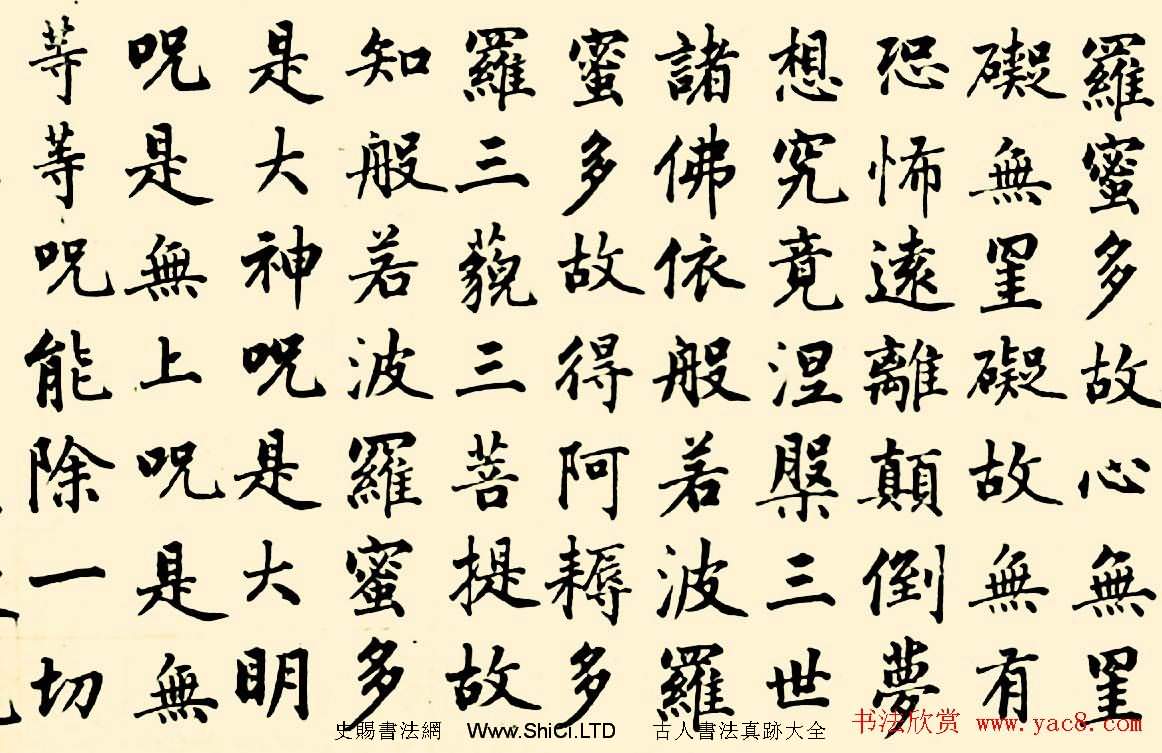 羅蜜多故心無罣
礙無罣礙故無有
恐怖遠離顛倒夢
想究竟涅槃三世
諸佛依般若波羅
蜜多故得阿耨多
羅三藐三菩提故
知般若波羅蜜多
是大神呪是大明
呪是無上呪是無
等等呪能除一切
史賜書法網 Www.ShiCi.LTD 古人書法真跡大全
书法欣赏 www.yac8.com